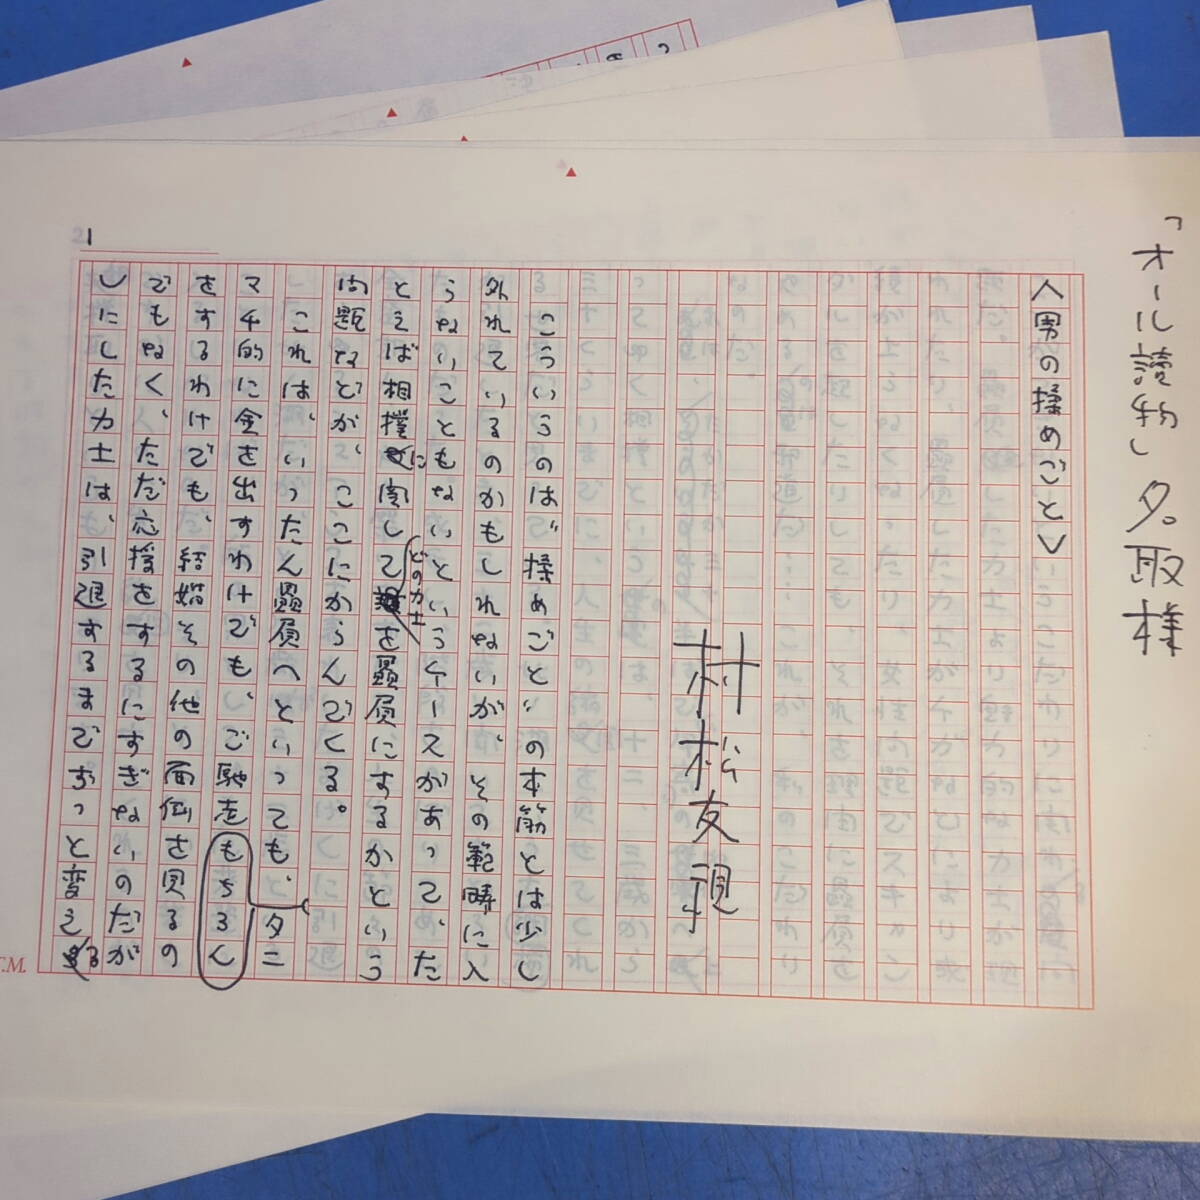 「オール讀物」名取様
〈男の揉めごと〉
村松友視
こういうのは〝揉めごと〟の本筋とは少し
外れているのかもしれないが、その範疇に入
らないこともないというケースがあって、た
とえば相撲に関してどの力士を贔屓にするかという
問題などが、ここにからんでくる。
これは、いったん贔屓へといっても、タニ
マチ的に金を出すわけでも、ご馳走もちろん
をするわけでも、結婚その他の面倒を見るの
でもなく、ただ応援をするにすぎないのだが
しにした力士は、引退するまでずっと変える
1